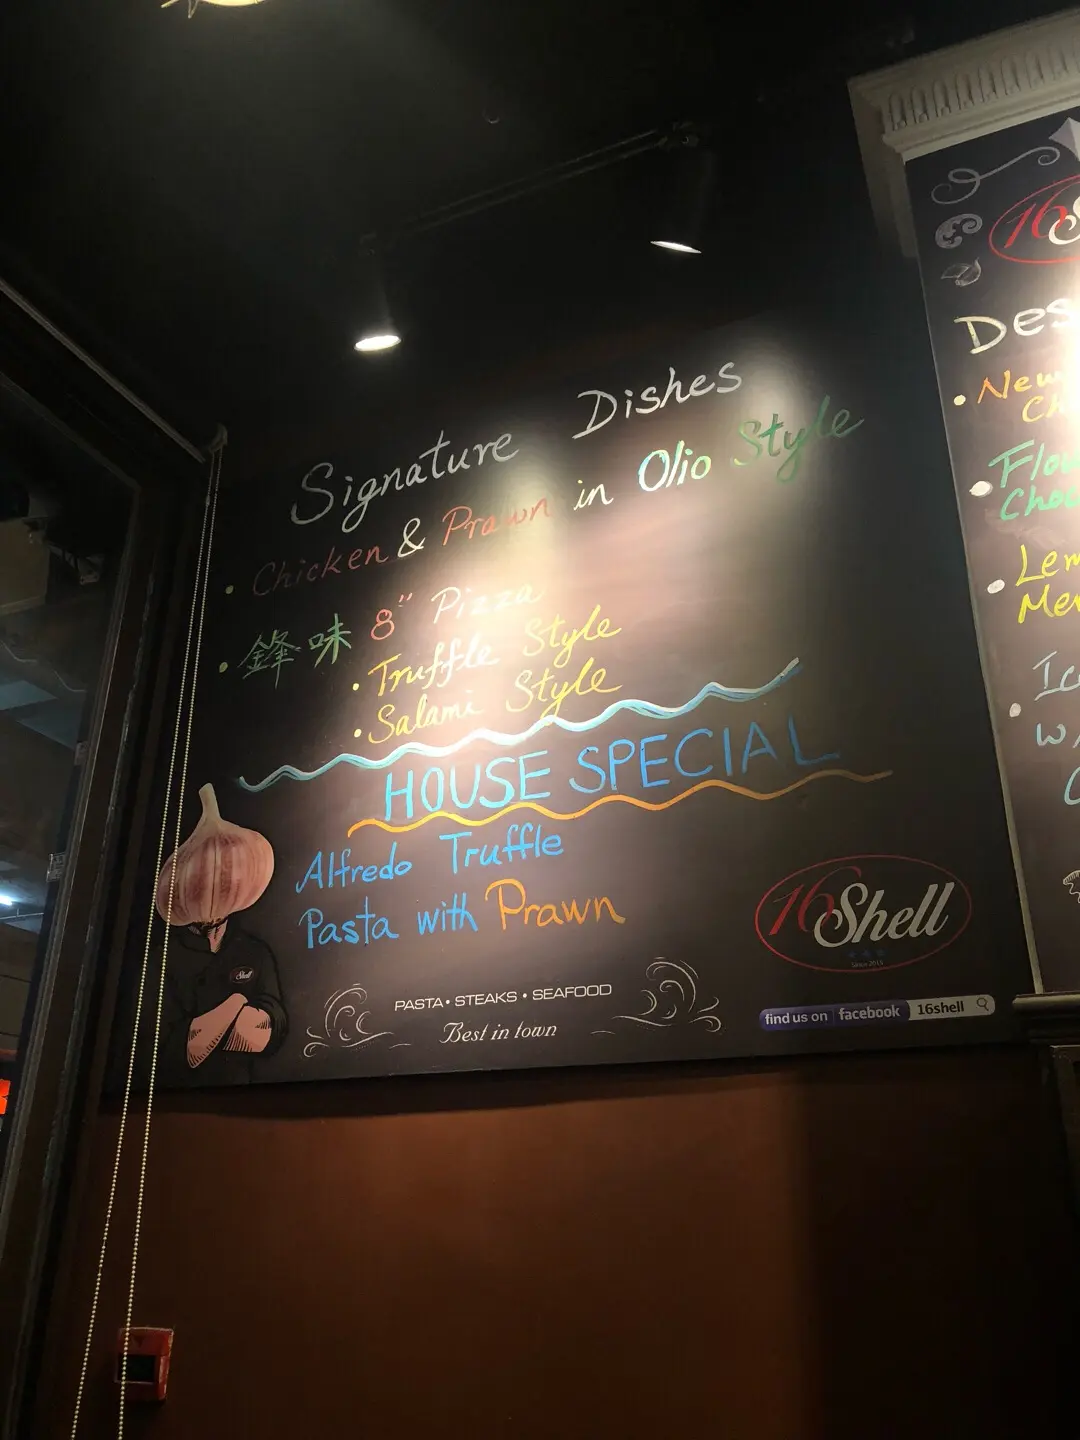 Signature Dishes
• Chicken & Prawn in Olio Style
• 鋒味 8" Pizza
• Truffle Style
• Salami Style
HOUSE SPECIAL
Alfredo Truffle
Pasta with Prawn
PASTA • STEAKS • SEAFOOD
Best in town
Shell
16Shell
Since 2015
find us on facebook 16shell
16
Des
• New
Ch
• Flou
Choc
• Lem
Mer
• Ice
w/
C